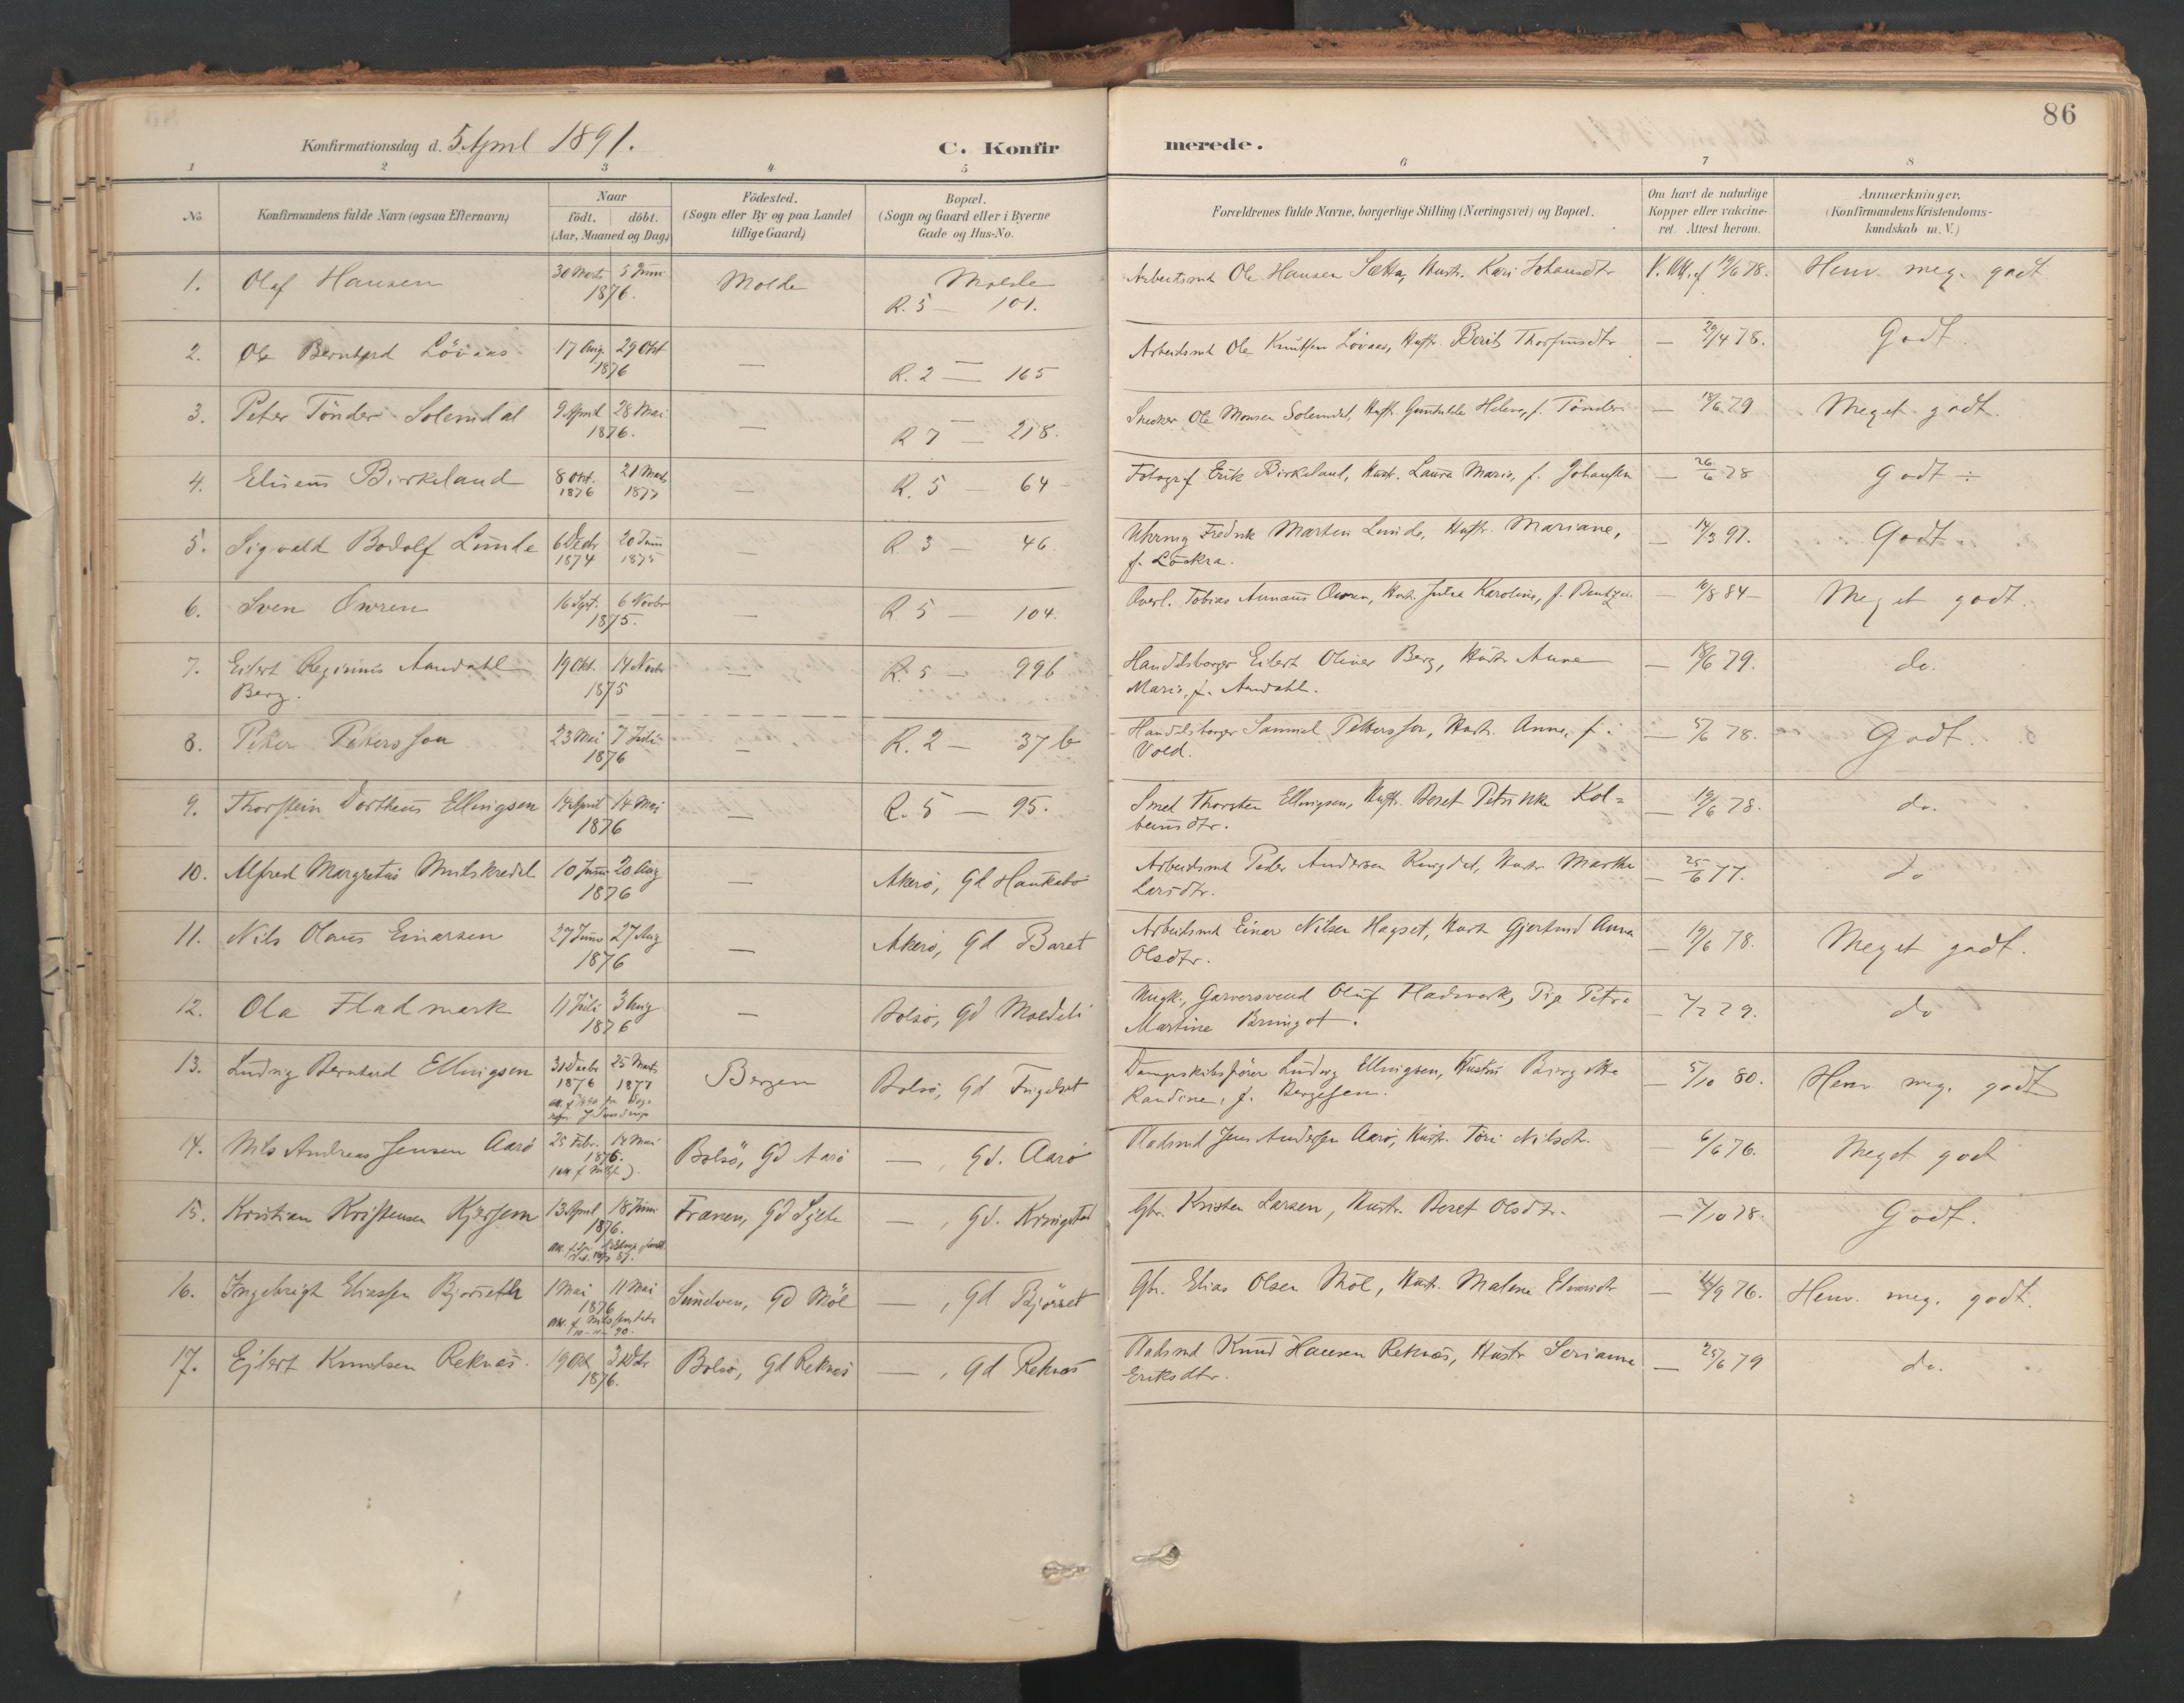 86
Konfirmationsdag d. 5 April 1891.
C. Konfirmerede.
1 2 3 4 5 6 7 8
No.
Konfirmandens fulde Navn (ogsaa Efternavn)
Naar
födt. döbt.
(Aar, Maaned og Dag)
Födested.
(Sogn eller By og paa Landet
tillige Gaard)
Bopæl.
(Sogn og Gaard eller i Byerne
Gade og Hus-No.
Forældrenes fulde Navne, borgerlige Stilling (Næringsvei) og Bopæl.
Om havt de naturlige
Kopper eller vakcine-
ret. Attest herom.
Anmærkninger.
(Konfirmandens Kristendoms-
kundskab m. V.)
1. Olaf Hansen 30 Marts 5 Juni Molde Molde
1876. R. 5 — 101.
Arbeidsmd Ole Hansen Sætta, Hustr. Kari Johansdtr 19/6 78. Henv. meg. godt
2. Ole Bernhard Lövaas 17 Aug 29 Okt — R. 2 — 165
1876
Arbeidsmd Ole Knutsen Lövaas, Hustr. Berit Thorfinsdtr — 29/4 78. Godt.
3. Peter Tönder Solemdal 9 April 28 Mai — R 7 — 218.
1876.
Snedker Ole Monsen Solemdal, Hustr. Helene, f. Tönder — 18/6 79 Meget godt.
4. Eliseus Birkeland 8 Okt. 21 Marts — R. 5 — 64
1876 1877
Fotograf Erik Birkeland, Hustr. Laura Marie, f. Johansen — 26/6 78 Godt ÷
5. Sigvald Bodolf Lunde 6 Decbr 20 Juni — R 3 — 46
1874 1875
Uhrmg Fredrik Martin Lunde, Hustr. Mariane, — 14/3 91. Godt
f. Löckra.
6. Sven Owren 16 Sept. 6 Novbr — R 5 — 104.
1875.
Overl. Tobias Annæus Owren, Hustr. Jutta Karoline, f. — 10/8 84 — Meget godt.
7. Eilert Reginius Aandahl 19 Okt. 14 Novbr — R. 5 — 99b
Berg. 1875
Handelsborger Eilert Oliver Berg, Hustr Anne — 18/6 79. do.
Marie, f. Aandahl.
8. Peter Petersson 23 Mai 7 Juli — R. 2 — 37 b
1876
Handelsborger Samuel Pettersson, Hustr. Anne, f. — 5/6 78. Godt.
Vold.
9. Thorstein Dortheus Ellingsen 14 April 14 Mai — R. 5 — 95.
1876
Smed Thorsten Ellingsen, Hustr. Beret Petrikke Kol= — 19/6 78. do.
beinsdtr.
10. Alfred Margretus 10 Juni 20 Aug — Akerø, Gd Haukabö
1876
Arbeidsmd Peder Andersen Ringdal, Hustr Martha — 25/6 77. do
Larsdtr.
11. Nils Olaus Einarsen 27 Juni 27 Aug — Akerø, Gd Baret
1876
Arbeidsmd Einar Nilsen Hagset, Hustr Gjertrud Anna — 19/6 78. Meget godt.
Olsdtr.
12. Ola Fladmark 11 Juli 3 Aug — Bolsø, Gd Moldeli
1876
Ungk., Garversvend Oluf Fladmark, Pige Petra — 79. do
Martine Bringot.
13. Ludvig Bernhard Ellingsen 31 Decbr 25 Marts Bergen Bolsø, Gd
1876 1877
Dampskibsfører Ludvig Ellingsen, Hustru Birgitte — 5/10 80. Henv. meg. godt
Randine, f. Bergesen.
14. Nils Andreas Jensen Aarö 25 Febr. 14 Mai Bolsö, Gd Aarö —, Gd. Aarö
1876.
Pladsmd Jens Andersen Aarø, Hustr. Töri Nilsdtr. — 6/6 76. Meget godt
15. Kristian Kristensen 13 April 18 Juni Frænen, Gd —, Gd. Kringstad
1876.
Gbr. Kristen Larsen, Hustr. Beret Olsdtr. — 7/10 78. Godt.
16. Ingebrigt Eliassen 1 Mai 11 Mai Sundven, Gd Möl —, Gd Bjørset
1876
Gbr. Elias Olsen Möl, Hustr. Malene — /9 76. Henv. meg. godt.
17. Ejlert Knudsen Reknæs. 19 Okt 3 Dcbr Bolsø, Gd Reknæs —, Gd Reknæs
1876.
Pladsmd Knud Hansen Reknæs, Hustr Serianne — 25/6 79 do.
Eriksdtr.